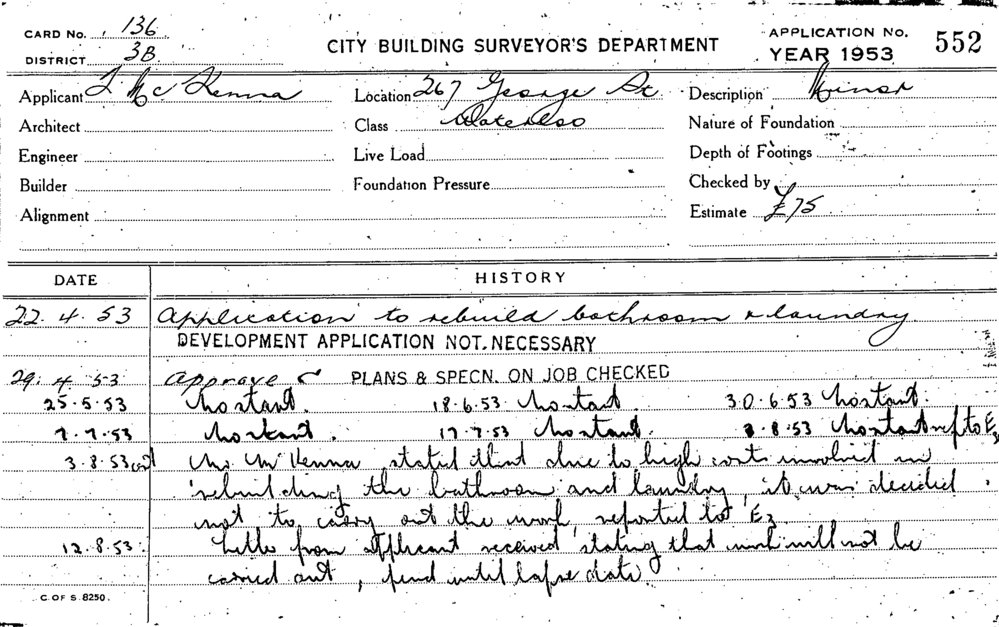 CARD No. 136
DISTRICT 3B
CITY BUILDING SURVEYOR'S DEPARTMENT
APPLICATION No. 552
YEAR 1953
Applicant T. McKenna Location 267 George St Description Minor
Architect Class Waterloo Nature of Foundation
Engineer Live Load Depth of Footings
Builder Foundation Pressure Checked by
Alignment Estimate £75
DATE HISTORY
22.4.53 Application to rebuild bathroom & laundry
DEVELOPMENT APPLICATION NOT NECESSARY
29.4.53 Approved PLANS & SPECN. ON JOB CHECKED
25.5.53 No start. 18.6.53 No start. 30.6.53 No start.
7.7.53 No start. 17.7.53 No start. 3.8.53 No start rep to E3
3.8.53 cont Mr McKenna stated that due to high costs involved in
rebuilding the bathroom and laundry, it was decided
not to carry out the work, reported to E3
12.8.53. Letter from applicant received stating that work will not be
carried out, pend until lapse date
C. OF S. 8250.